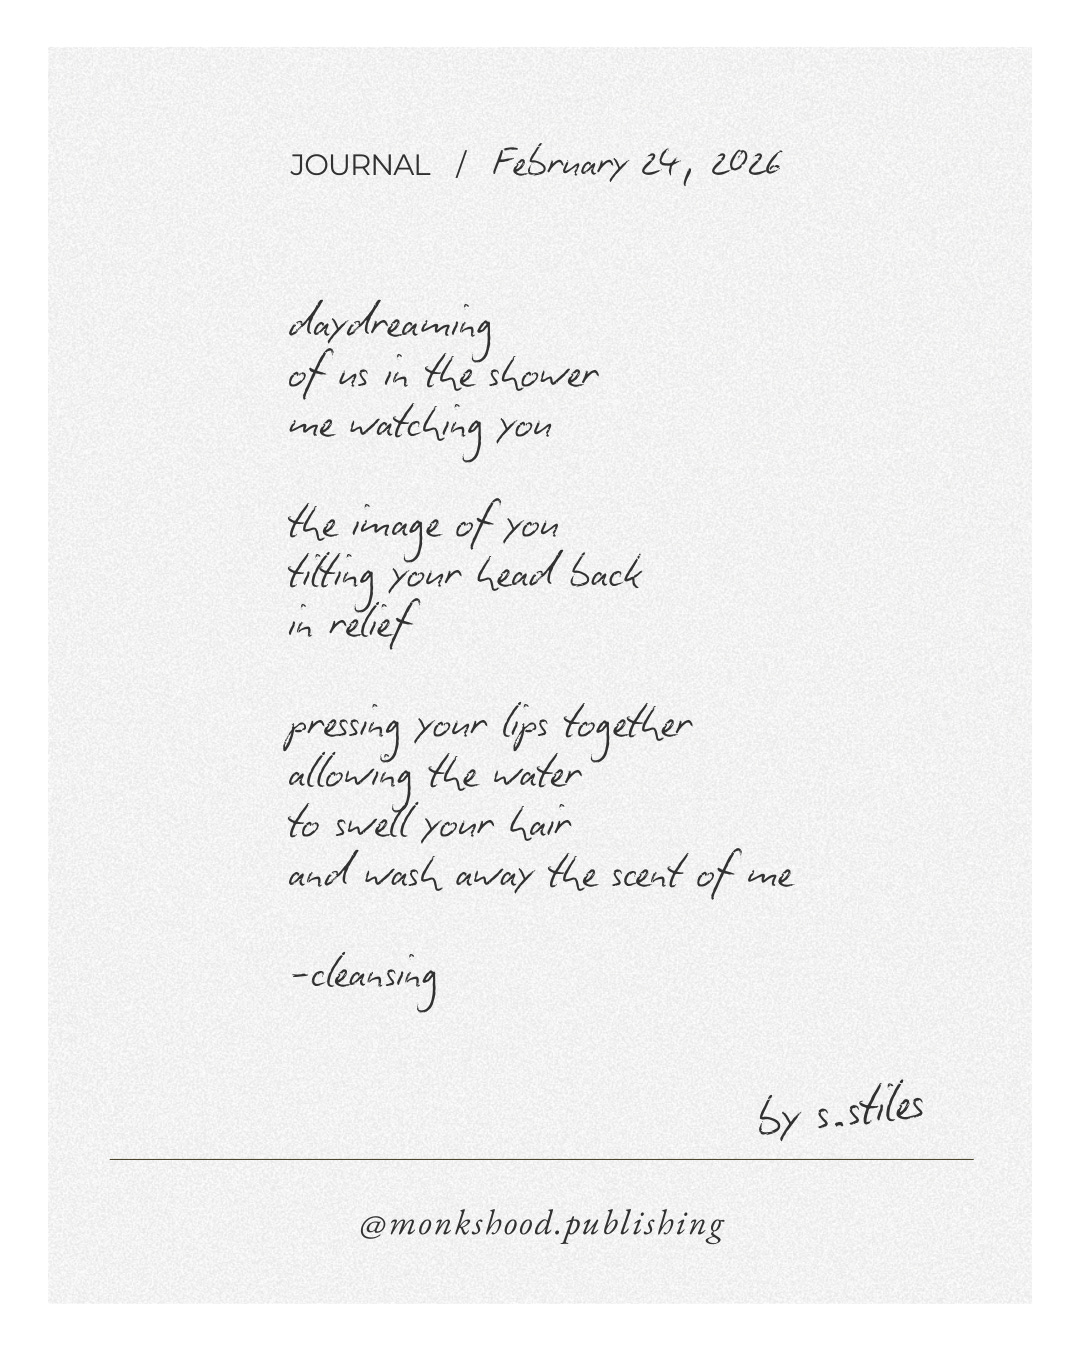 JOURNAL / February 24, 2026
daydreaming
of us in the shower
me watching you
the image of you
tilting your head back
in relief
pressing your lips together
allowing the water
to swell your hair
and wash away the scent of me
-cleansing
by s.stiles
@monkshood.publishing